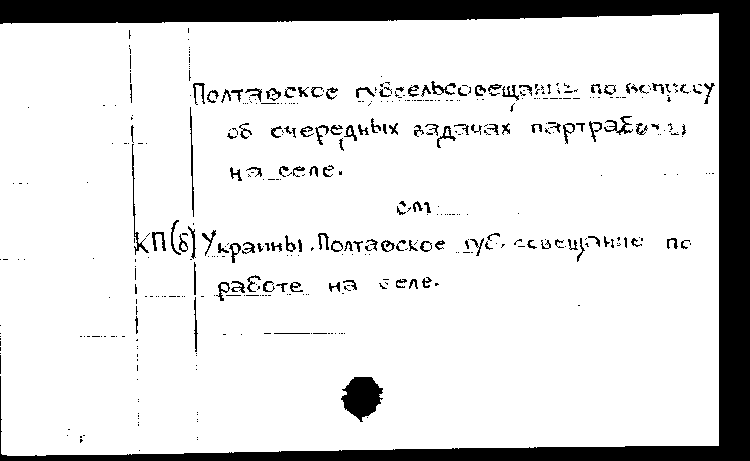 Полтавское губсельсовещание по вопросу
об очередных задачах партработы
на селе.
см
КП(б) Украины. Полтавское губ. совещание по
работе на селе.